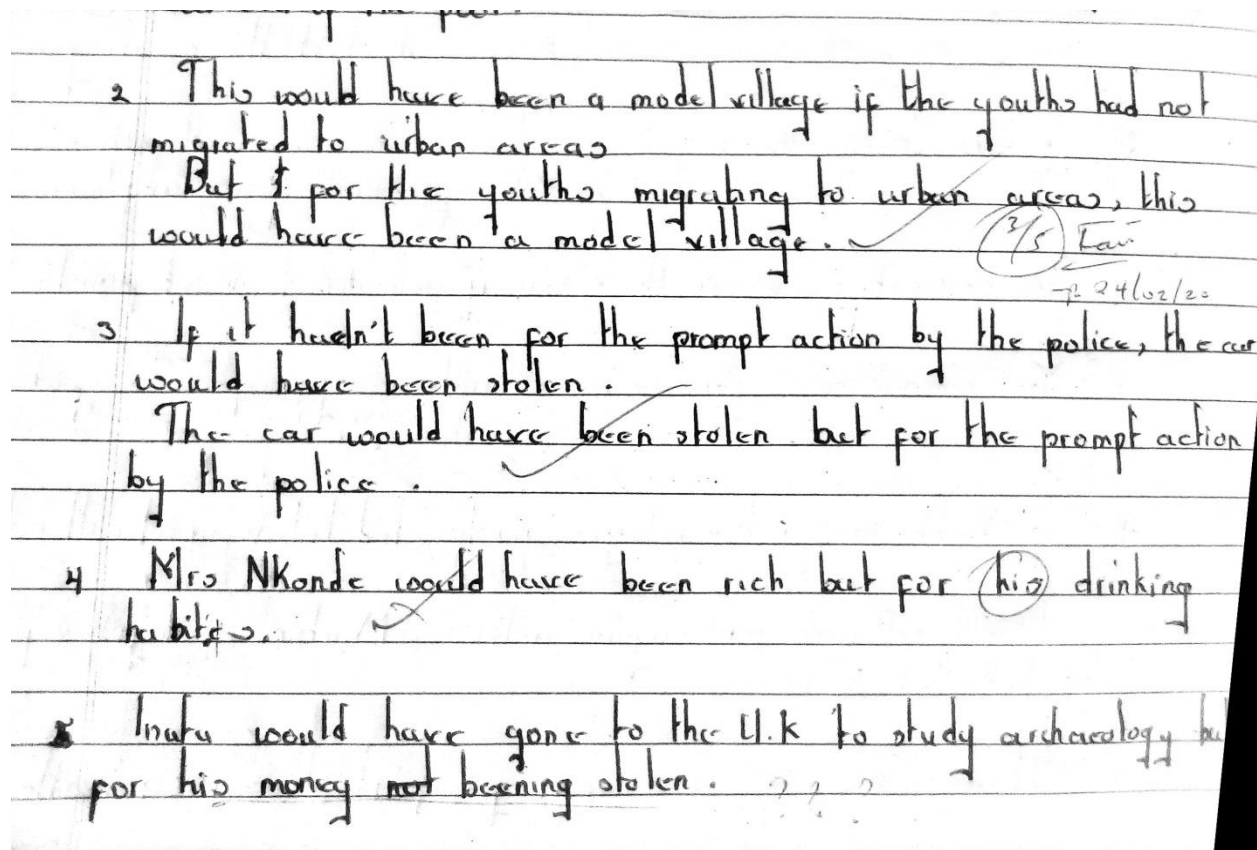 2 This would have been a model village if the youths had not
migrated to urban areas
But for the youths migrating to urban areas, this
would have been a model village.
3/5 Fair
24/02/20
3 If it hadn't been for the prompt action by the police, the car
would have been stolen.
The car would have been stolen but for the prompt action
by the police.
4 Mrs NKonde would have been rich but for his drinking
habits.
5 would have gone to the U.K to study archaeology
for his money not beening stolen. ? ? ?